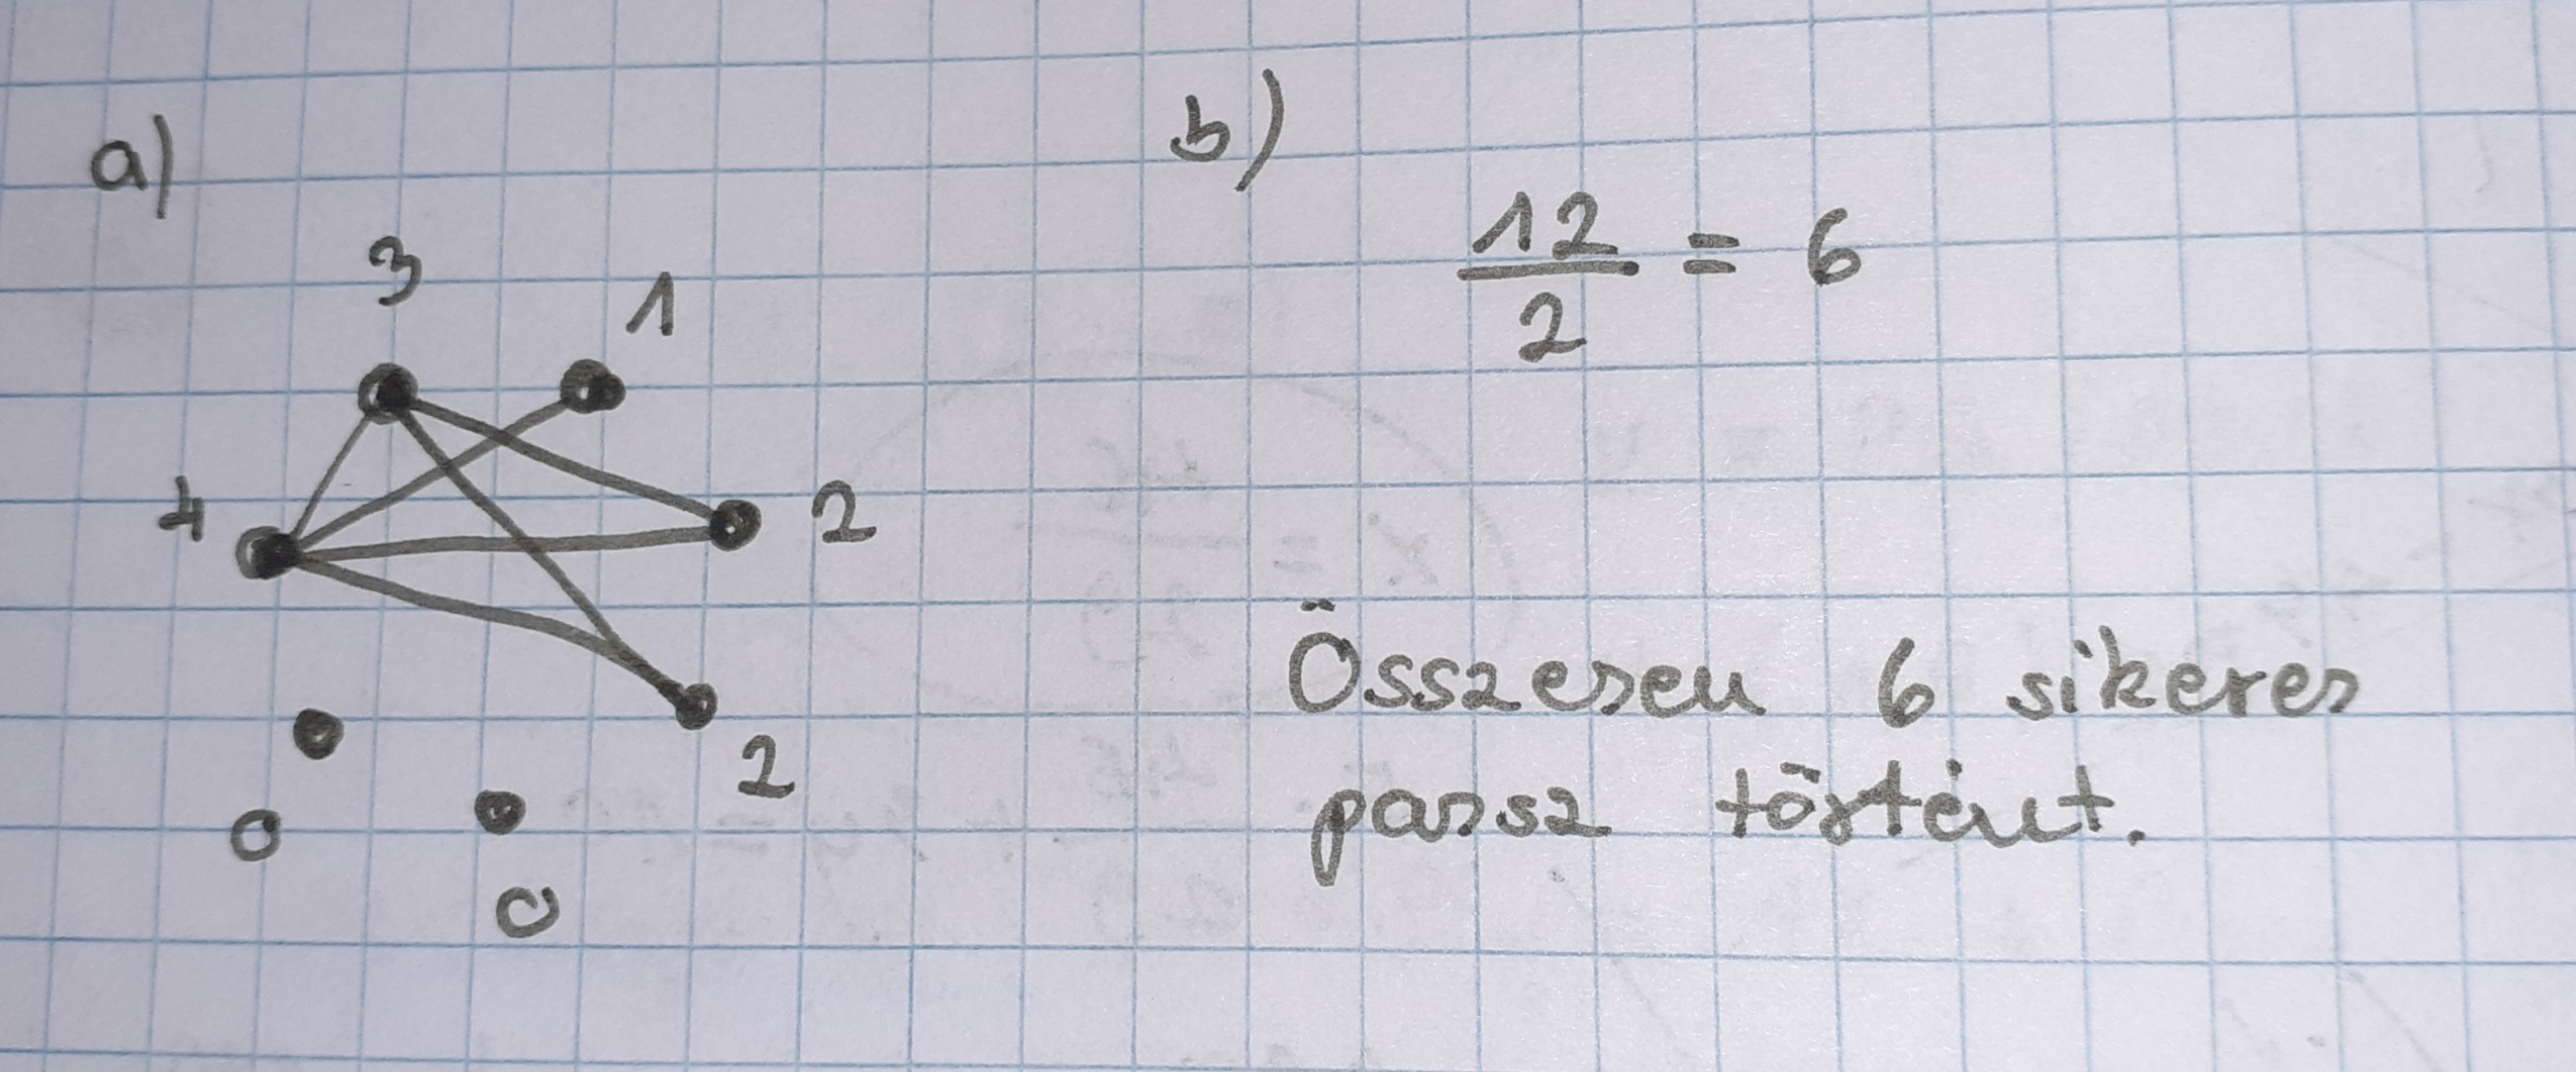 a)
3
1
4
2
2
0
0
b)
12
2
= 6
Összesen 6 sikeres
passz történt.